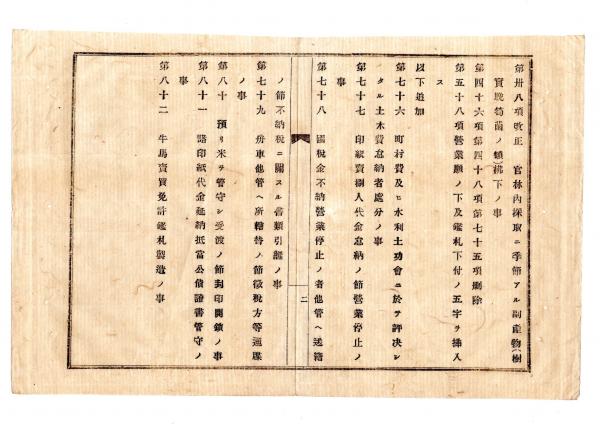 第卅八項改正　官林內採取ニ季節アル副產物（樹
實晩筍菌ノ類）拂下ノ事
第四十六項第四十八項第七十五項删除
第五十八項營業願ノ下及鑑札下付ノ五字ヲ揷入
ス
以下追加
第七十六　町村費及ヒ水利土功會ニ於テ評决シ
タル土木費怠納者處分ノ事
第七十七　印紙賣捌人代金怠納ノ節營業停止ノ
事
第七十八　國稅金不納營業停止ノ者他管ヘ送籍
二
ノ節不納稅ニ關スル書類引繼ノ事
第七十九　舟車他管ヘ所轄替ノ節徵稅方等通牒
ノ事
第八十　預リ米ヲ管守シ受渡ノ節封印開鎖ノ事
第八十一　罫印紙代金延納抵當公債證書管守ノ
事
第八十二　牛馬賣買免許鑑札製造ノ事